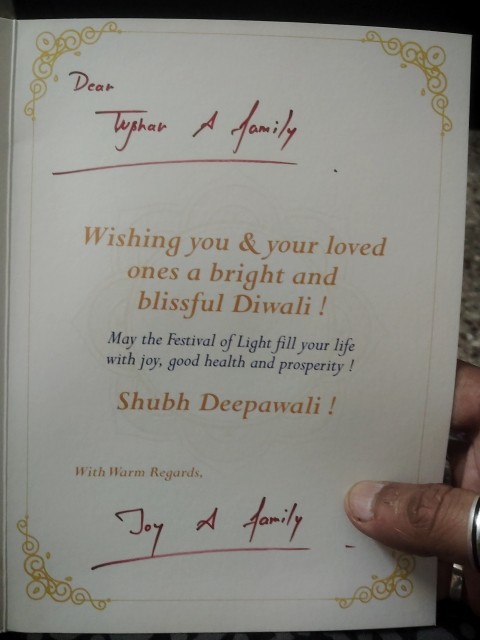 Dear
Tushar & family
Wishing you & your loved
ones a bright and
blissful Diwali !
May the Festival of Light fill your life
with joy, good health and prosperity !
Shubh Deepawali !
With Warm Regards,
Joy & family